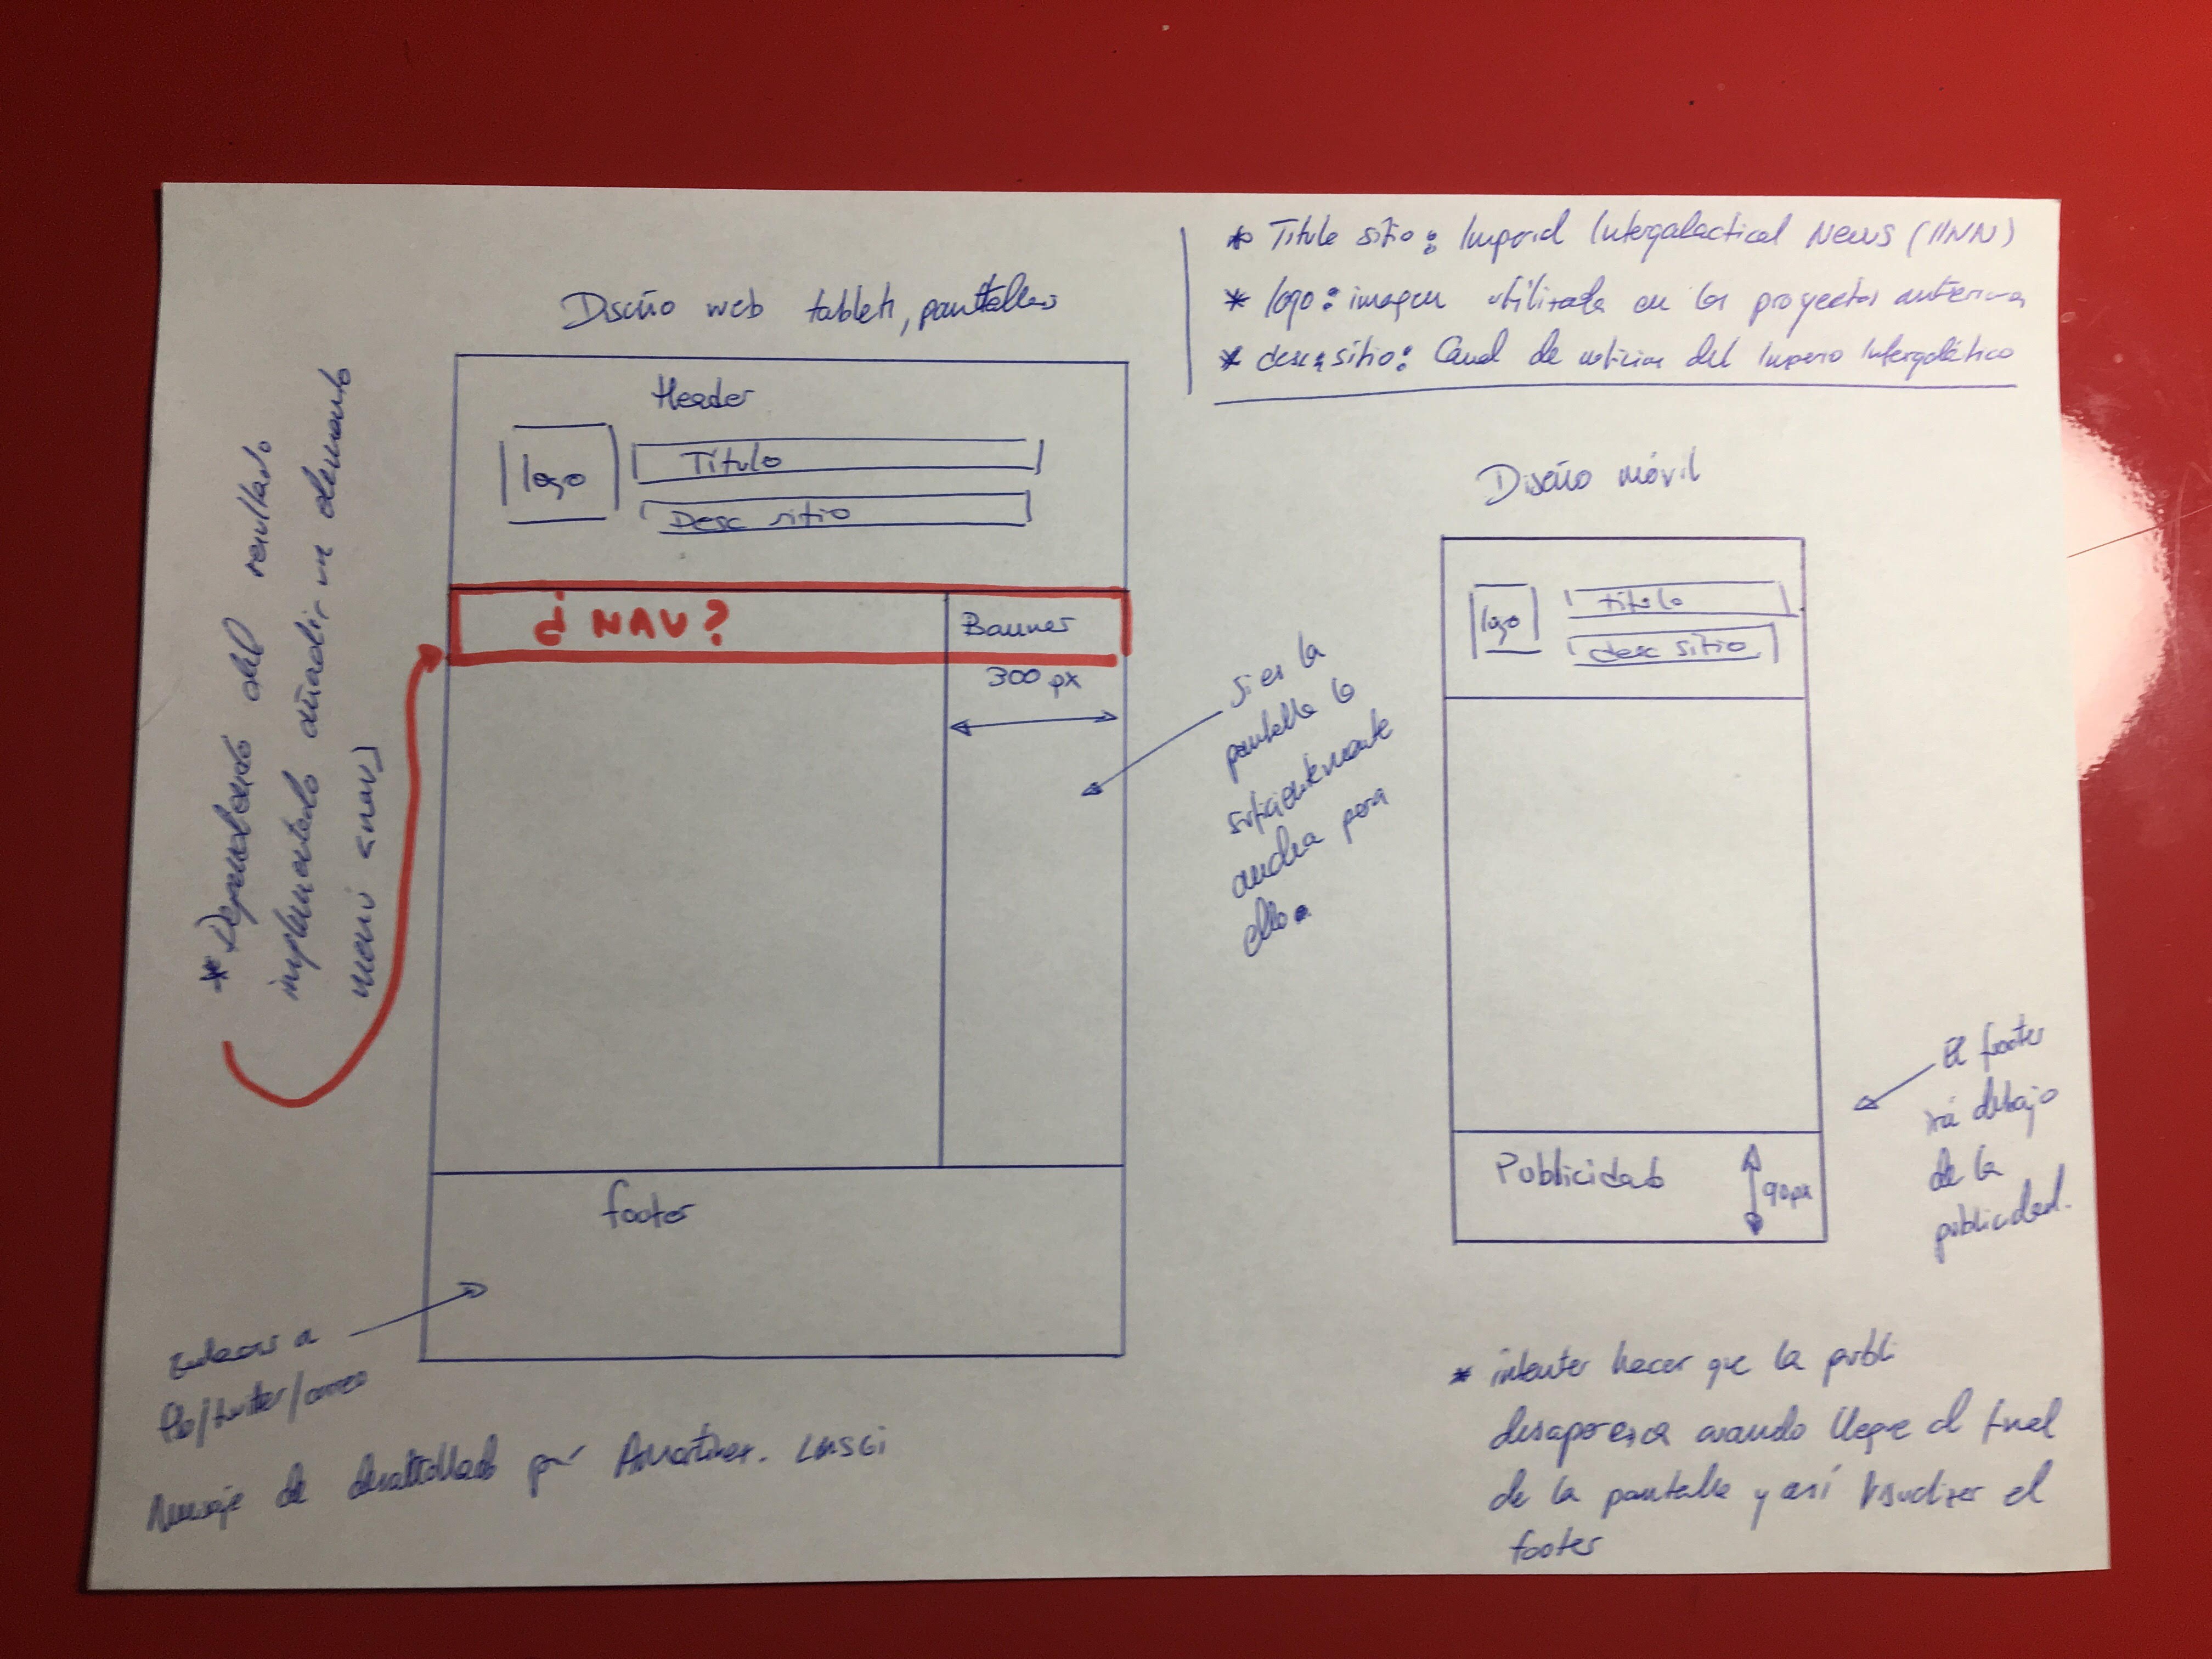 * Titulo sitio: Imperial Intergalactical News (IINN)
* logo: imagen utilizada en los proyectos anteriores
* desc. sitio: Canal de noticias del Imperio Intergaláctico
Diseño web tablets, pantallas
Header
logo
Título
Desc sitio
¿NAV?
Banner
300 px
footer
* Dependiendo del resultado
implementado añadir un elemento
menú <nav>
Si es la
pantalla lo
suficientemente
ancha para
ello.
Enlaces a
fb/twitter/correo
Mensaje de desarrollado por AMartínez.
Diseño móvil
logo
título
desc sitio
Publicidad
90px
El footer
irá debajo
de la
publicidad.
* intentar hacer que la publi
desaparezca cuando llegue al final
de la pantalla y así visualizar el
footer